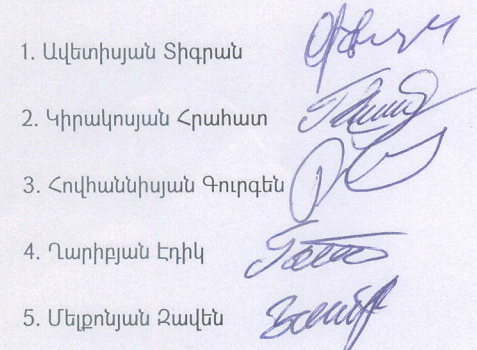 1. Ավետիսյան Տիգրան
2. Կիրակոսյան Հրահատ
3. Հովհաննիսյան Գուրգեն
4. Ղարիբյան Էդիկ
5. Մելքոնյան Զավեն